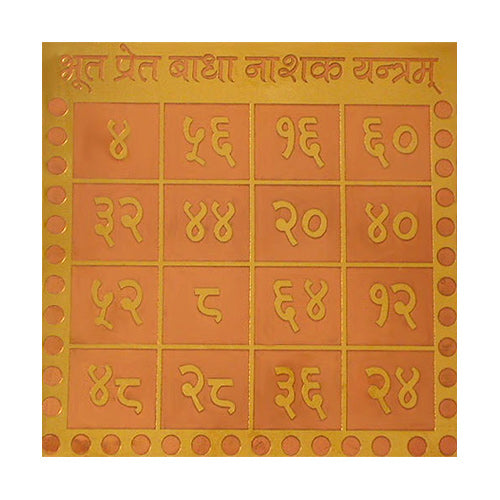 भूत प्रेत बाधा नाशक यन्त्रम्
४ ५६ १६ ६०
३२ ४४ २० ४०
५२ ८ ६४ १२
४८ २८ ३६ २४